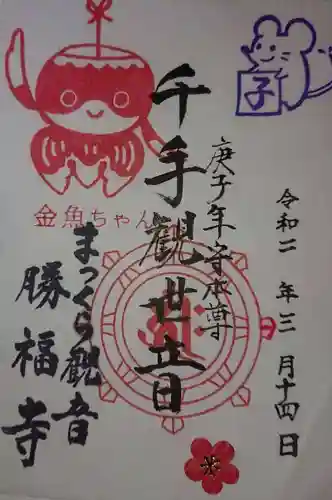 子
令和二年三月十四日
庚子年守本尊
千手観世音
金魚ちゃん
まっくら観音
勝福寺